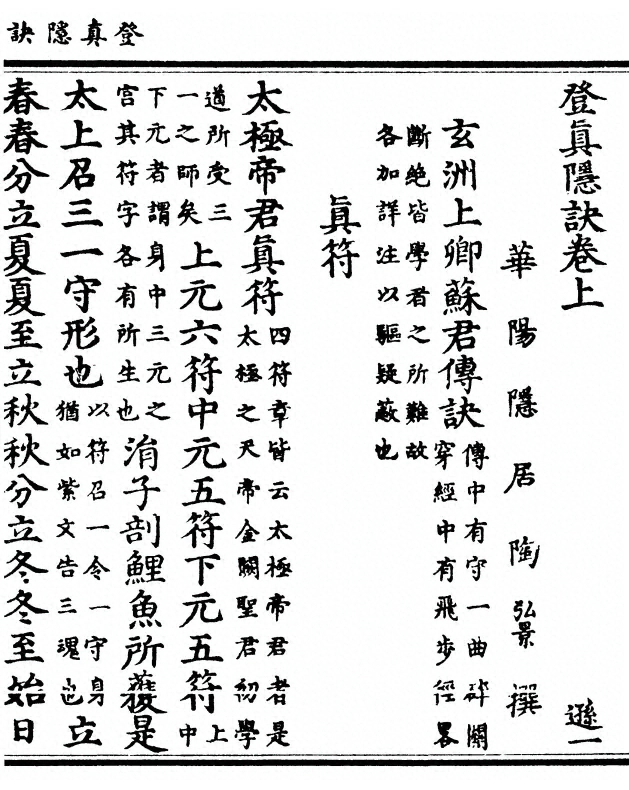 登真隱訣
登眞隱訣卷上 遜一
華陽隱居陶弘景撰
玄洲上卿蘇君傳訣傳中有守一曲碎關穿經中有飛步徑畧
斷絕皆學者之所難故各加詳注以驅疑蔽也
眞符
太極帝君眞符四符章皆云太極帝君者是太極之天帝金闕聖君初學
道所受三一之師矣上元六符中元五符下元五符上中
下元者謂身中三元之宮其符字各有所生也涓子剖鯉魚所獲是
太上召三一守形也以符召一令一守身猶如紫文告三魂也立
春春分立夏夏至立秋秋分立冬冬至始日